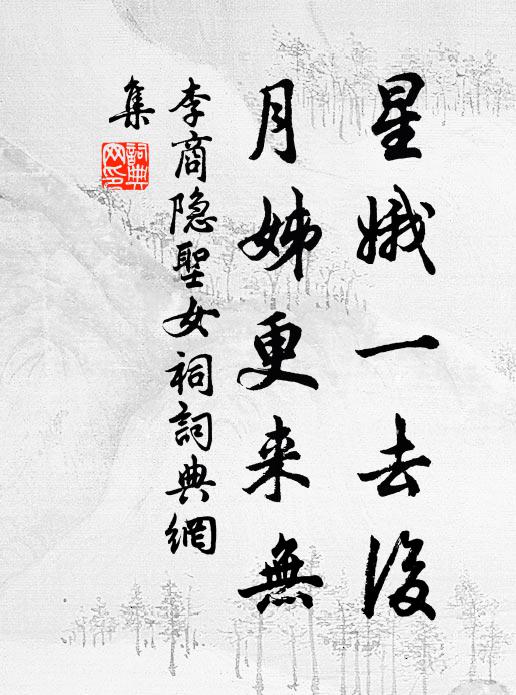 星娥一去後
月姊更来無
李商隐聖女祠詞典網
集
詞典网印